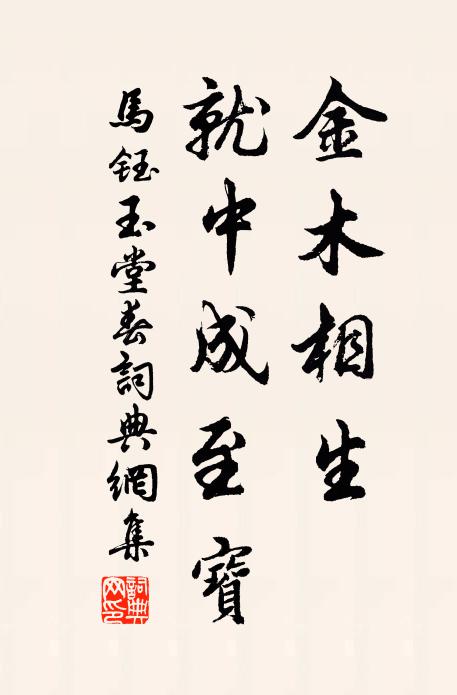 金木相生
就中成至寶
馬鈺玉堂春詞典網集
詞典網印